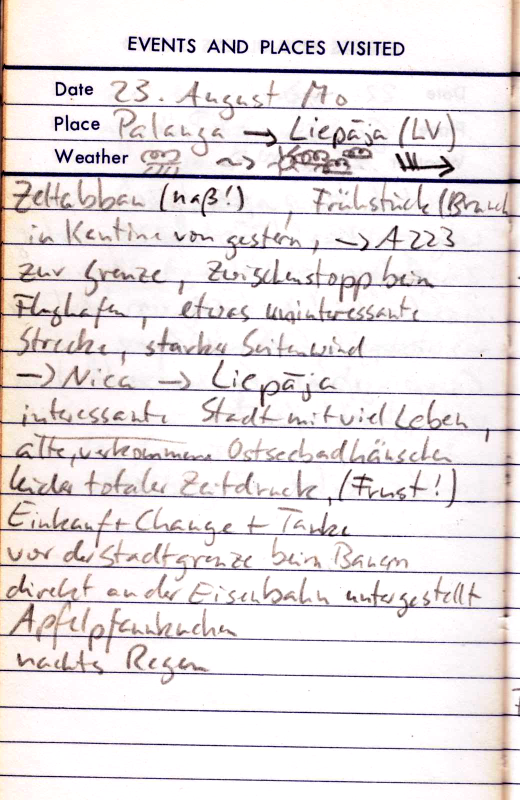 EVENTS AND PLACES VISITED
Date 23. August Mo
Place Palanga → Liepāja (LV)
Weather
Zeltabbau (naß!), Frühstück (Brunch
in Kantine von gestern, → A223
zur Grenze, Zwischenstopp beim
Flughafen, etwas uninteressante
Strecke, starker Seitenwind
→ Nica → Liepāja
interessante Stadt mit viel Leben,
alte, verkommene Ostseebadhäuschen
leider totaler Zeitdruck, (Frust!)
Einkauf + Change + Tanke
vor der Stadtgrenze beim Bauern
direkt an der Eisenbahn untergestellt
Apfelpfannkuchen
nachts Regen